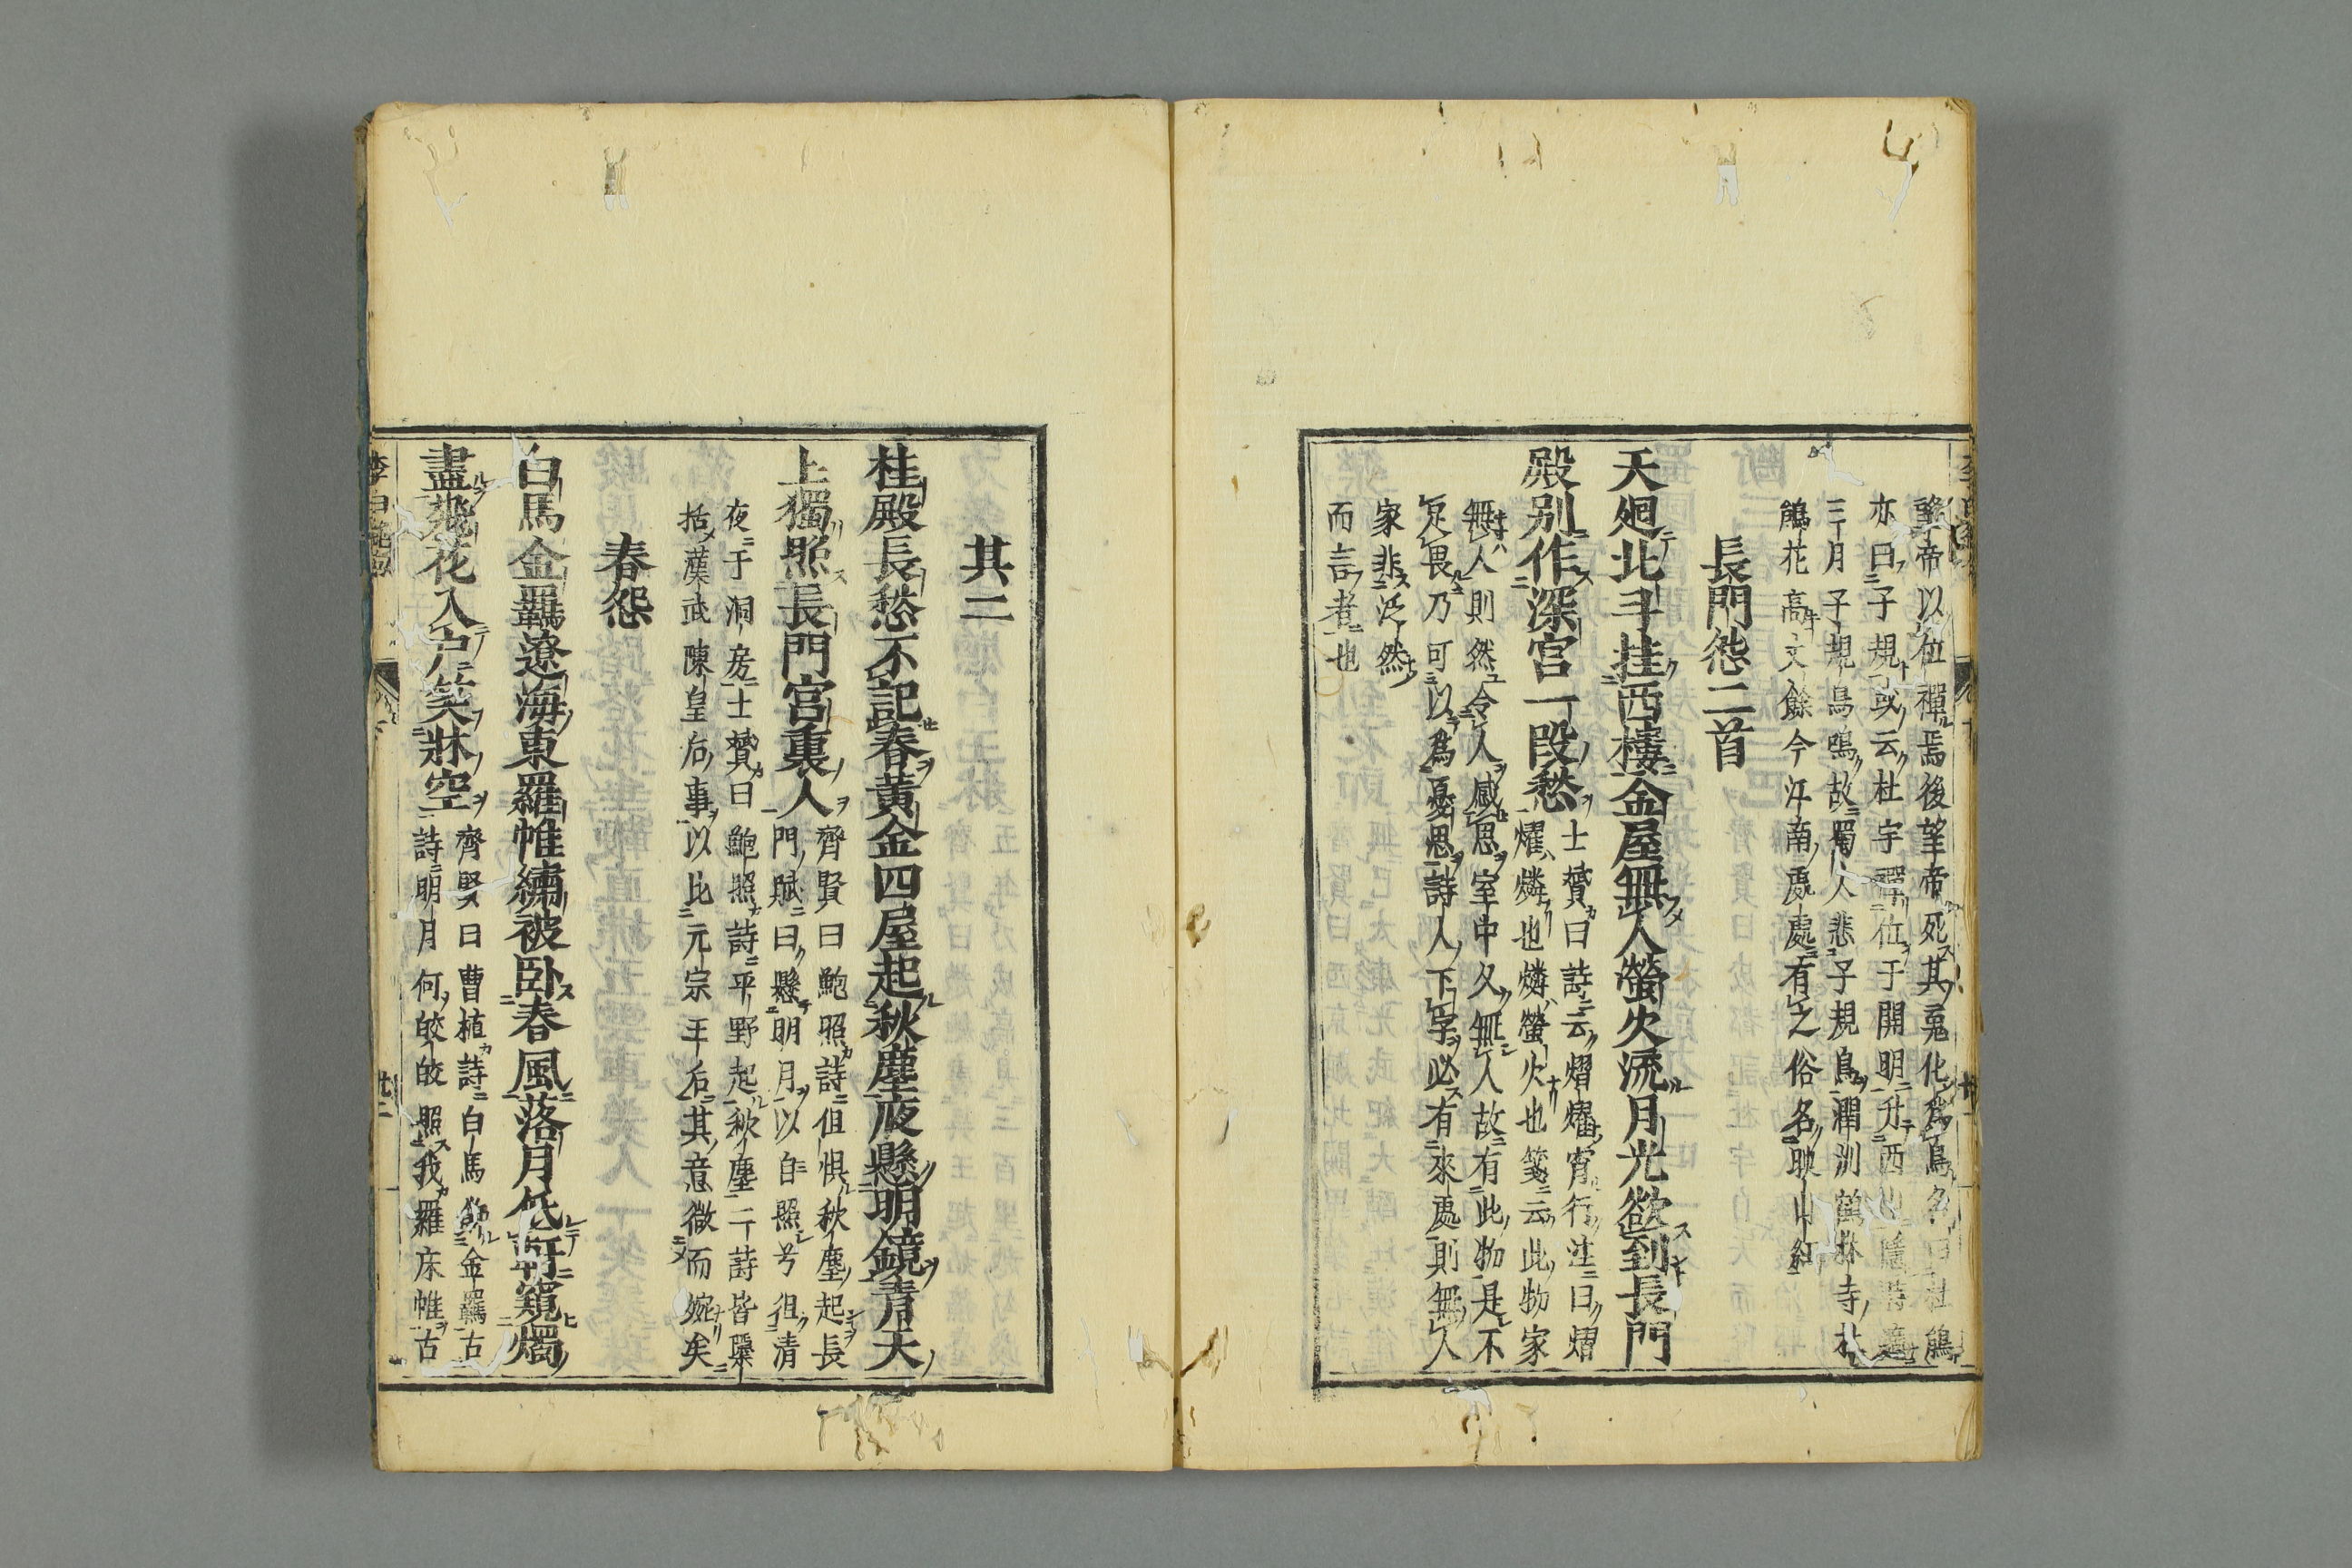 帝以位禪焉後望帝死其䰟化爲鳥名曰杜鵑
亦曰子規或云杜宇禪位于開明升西山隱
三月子規鳥鳴故蜀人悲子規鳥潤洲鶴林寺杜
鵑花高丈餘今江南處處有之俗名映山紅
長門怨二首
天廻北斗挂西樓金屋無人螢火流月光欲到長門
殿別作深宮一段愁
士贇曰詩云熠燿宵行注曰熠
燿燐也燐螢火也箋云此物家
無人則然令人感思室中久無人故有此物是不
足畏乃可以爲憂思詩人下字必有來處則無人
家非泛然
而言者也
其二
桂殿長愁不記春黃金四屋起秋塵夜懸明鏡青天
上獨照長門宮裏人
齊賢曰鮑照詩但惧秋塵起長
門賦曰懸明月以自照兮徂清
夜于洞房士贇曰鮑照詩平野起秋塵二詩皆櫽
括漢武陳皇后事以比元宗王后其意微而婉矣
春怨
白馬金羈遼海東羅帷繡被臥春風落月低軒窺燭
盡飛花入戶笑牀空
齊賢曰曹植詩白馬飾金羈古
詩明月何皎皎照我羅床帷古
李白
廿二